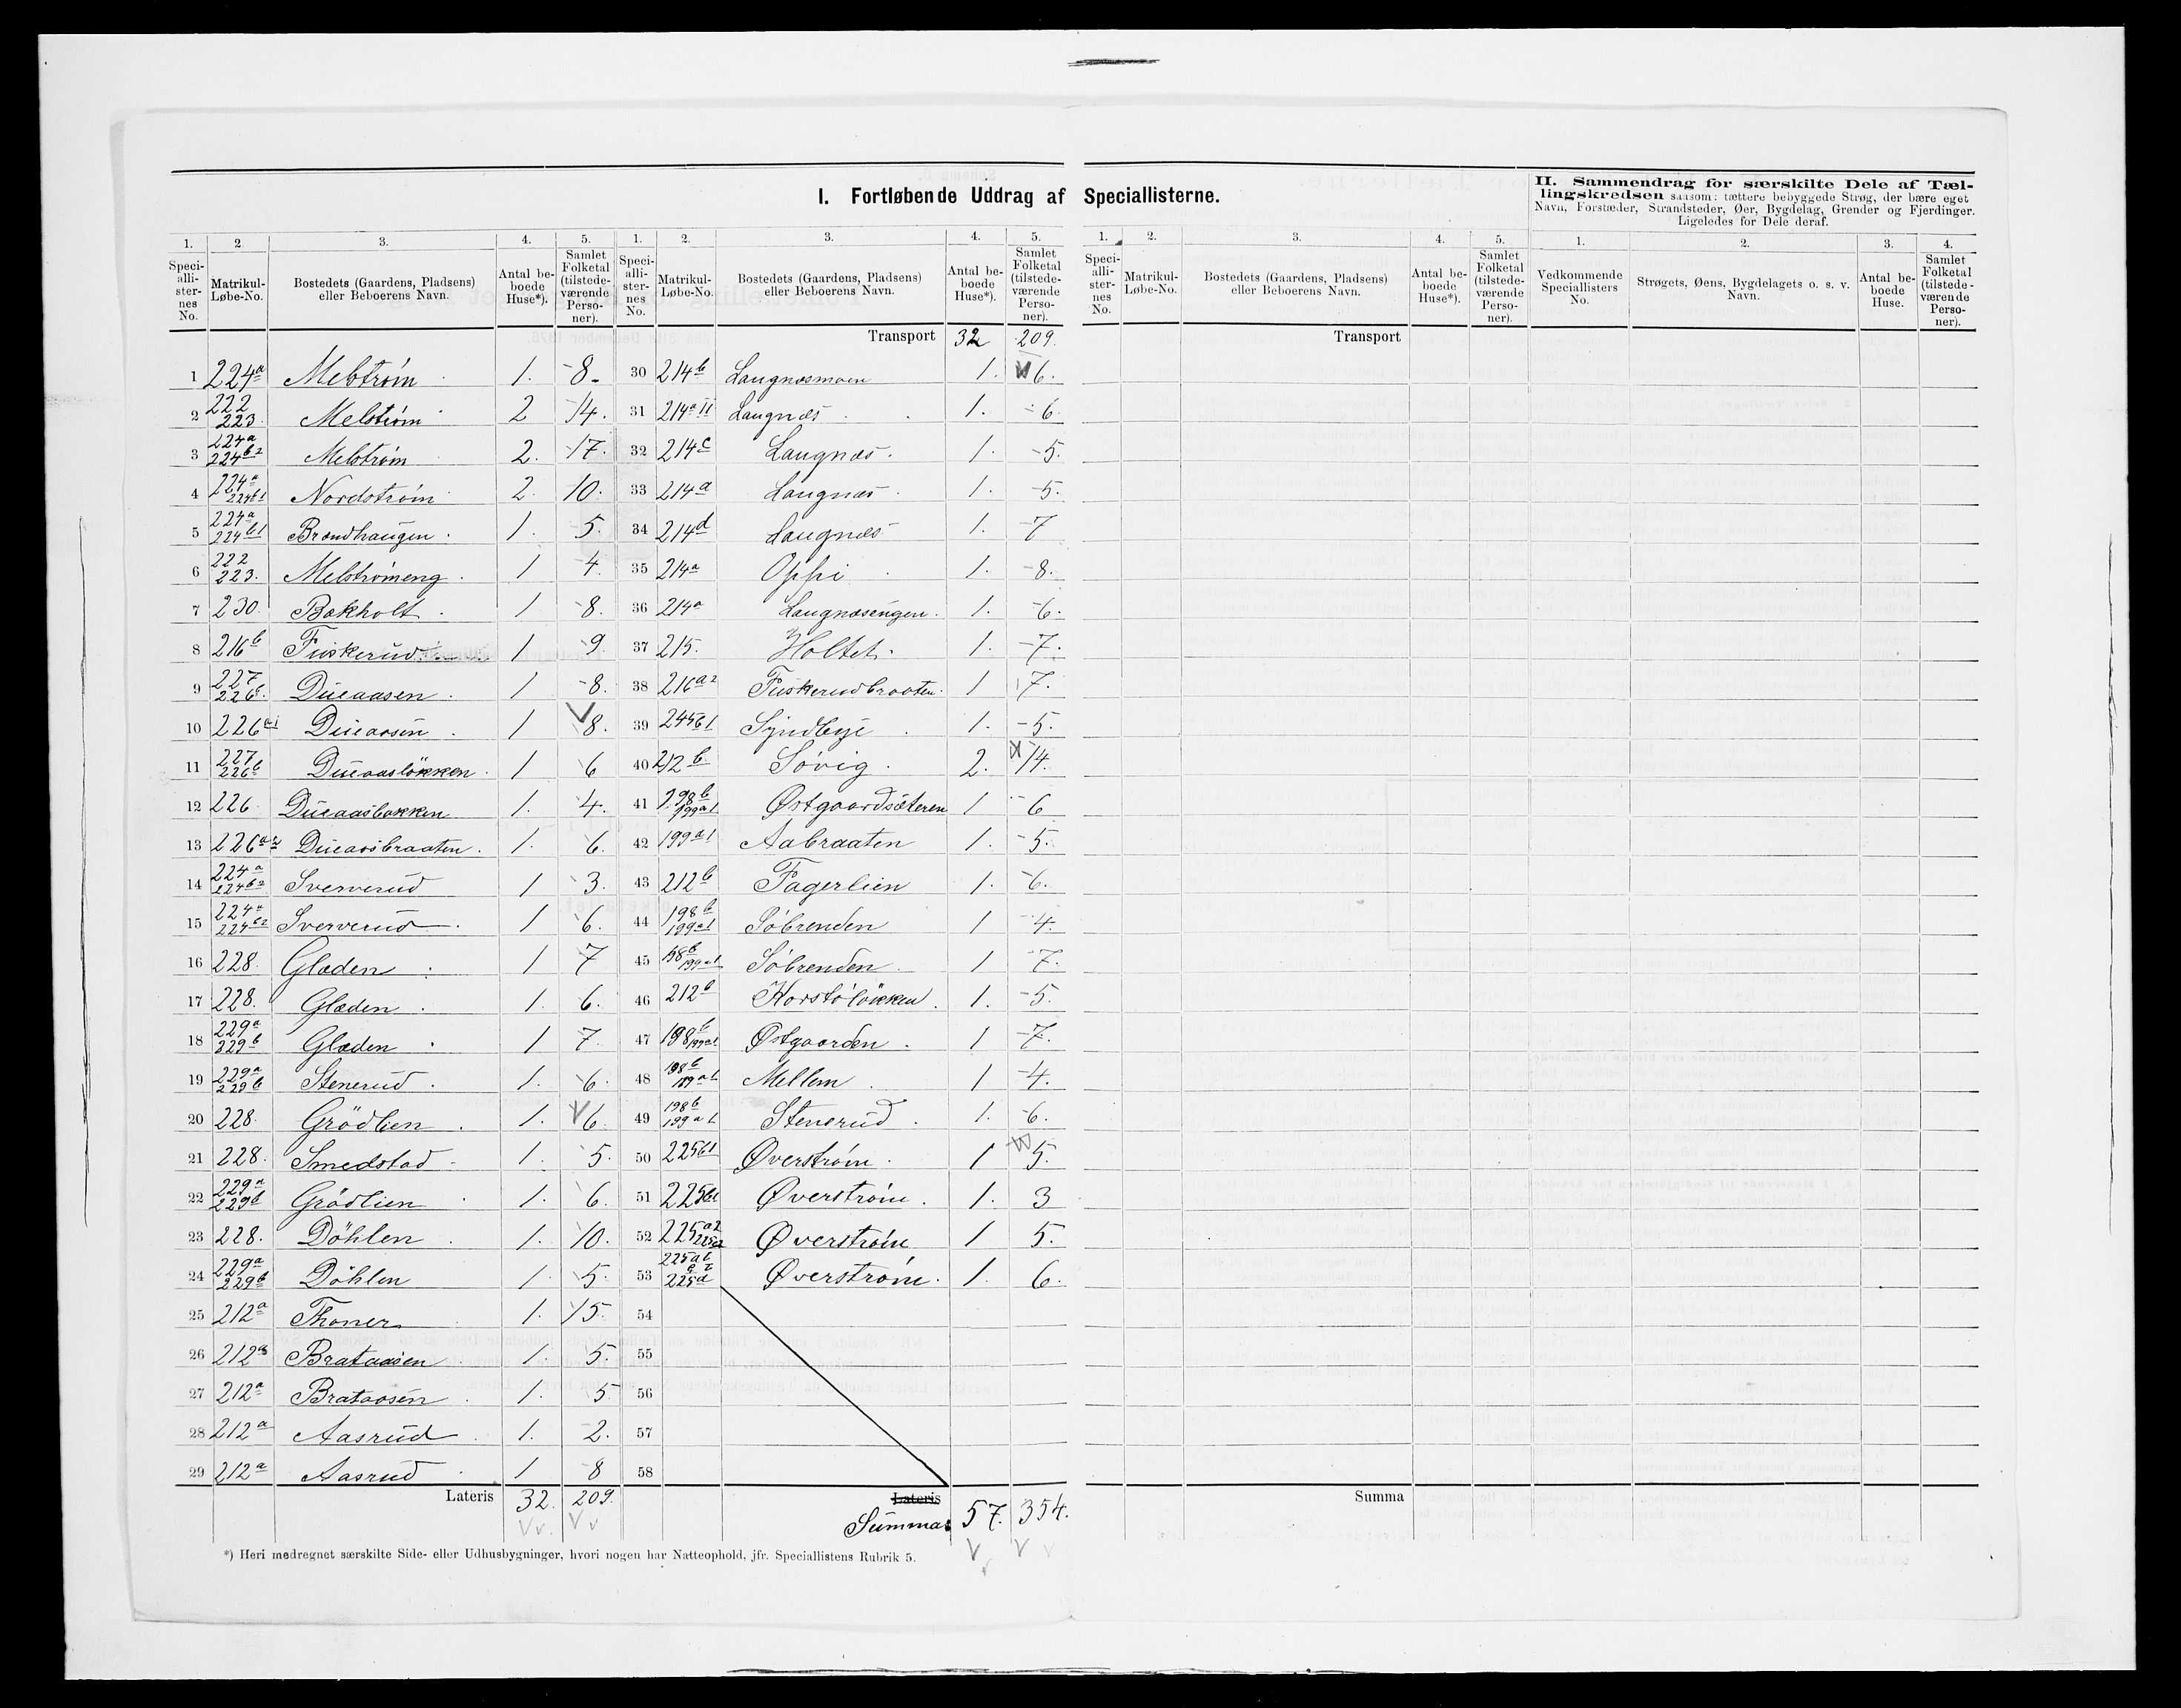 I. Fortløbende Uddrag af Speciallisterne.
II. Sammendrag for særskilte Dele af Tæl-
lingskredsen saasom: tættere bebyggede Strøg, der bære eget
Navn, Forstæder, Strandsteder, Øer, Bygdelag, Grender og Fjerdinger.
Ligeledes for Dele deraf.
1. 2 3. 4. 5. 1. 2. 3. 4. 5. 1. 2. 3. 4. 5. 1. 2. 3. 4.
Speci-alli-ster-nes No. Matrikul-Løbe-No. Bostedets (Gaardens, Pladsens) eller Beboerens Navn. Antal be-boede Huse*). Samlet Folketal (tilstede-værende Perso-ner).
Speci-alli-ster-nes No. Matrikul-Løbe-No. Bostedets (Gaardens, Pladsens) eller Beboerens Navn. Antal be-boede Huse*). Samlet Folketal (tilstede-værende Perso-ner).
Speci-alli-ster-nes No. Matrikul-Løbe-No. Bostedets (Gaardens, Pladsens) eller Beboerens Navn. Antal be-boede Huse*). Samlet Folketal (tilstede-værende Perso-ner).
Vedkommende Speciallisters No. Strøgets, Øens, Bygdelagets o. s. v. Navn. Antal be-boede Huse. Samlet Folketal (tilstede-værende Perso-ner).
1 224a Melström 1. 8.
2 222 223. Melström 2 14.
3 224a 224b2 Melström 2. 17.
4 224a 224b1 Nordström 2. 10.
5 224a 224b1 Brændhaugen 1. 5.
6 222 223. Melströmeng 1 4.
7 230. Bakholt 1 8.
8 216b Fuskerud 1 9.
9 227 226c. Dueaasen 1 8.
10 226a1 Dueaasen 1 8.
11 227 226b Dueaaslökken 1 6
12 226 Dueaasbakken 1. 4.
13 226a2 Dueaasbraaten 1. 6.
14 224a 224b2 Sververud 1 3.
15 224a 224b2 Sververud 1 6.
16 228. Glæden 1 7
17 228. Glæden 1. 6.
18 229a 229b Glæden 1 7.
19 229a 229b Stenerud 1. 6.
20 228. Grödlien 1. 6.
21 228. Smedstad 1. 5.
22 229a 229b Grödlien 1. 6.
23 228. Döhlen 1. 10.
24 229a 229b Döhlen 1. 5.
25 212a Thoner 1. 15.
26 212a Brataasen 1. 5.
27 212a Brataasen 1. 5
28 212a Aasrud 1. 2.
29 212a Aasrud 1 8
Lateris 32. 209.
Transport 32 209.
30 214b Langnæsmoen 1. 6.
31 214a II Langnæs 1. 6.
32 214c Langnæs 1. 5.
33 214a Langnæs 1. 5.
34 214d Langnæs 1. 7
35 214a Oppi 1. 8.
36 214a Langnæsengen 1. 6.
37 215. Holtet 1. 7.
38 216a2 Fuskerudbraaten 1 7.
39 245b1 Syndbye 1. 5.
40 212b. Sövig 2. 14.
41 198b 199a1 Østgaardsæteren 1 6
42 199a1 Aabraaten 1. 5.
43 212b Fagerlien 1. 6.
44 198b 199a1 Söbrenden 1 4.
45 198b 199a1 Söbrenden 1 7.
46 212b 1. 5.
47 198b 199a1 Østgaarden 1 7.
48 198b 199a1 Mellem 1 4.
49 198b 199a1 Stenerud 1. 6.
50 225b1 Øverström 1 5.
51 225b1 Øverström 1. 3
52 225a2 Øverström 1 5.
53 225a1 Øverström 1. 6.
54
55
56
57
58
Lateris
Summa 57. 354.
Transport
Summa
*) Heri medregnet særskilte Side- eller Udhusbygninger, hvori nogen har Natteophold, jfr. Speciallistens Rubrik 5.